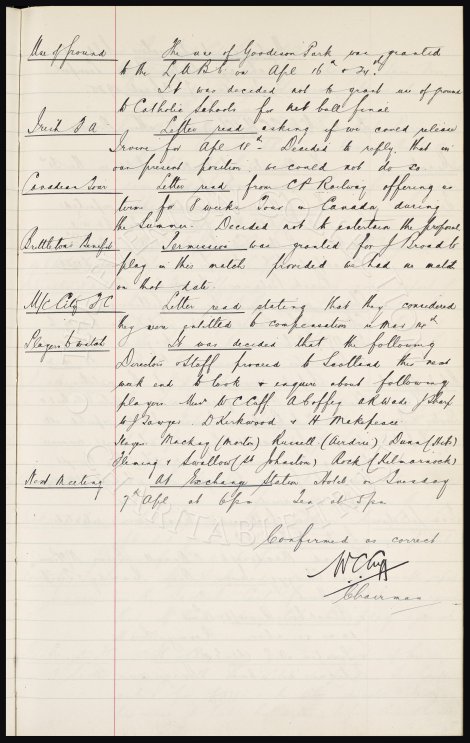 Use of ground The use of Goodison Park was granted
to the L.A.B.C. on Apl 16th & 24th.
It was decided not to grant use of ground
to Catholic Schools for net ball final
Irish F A Letter read asking if we could release
Irvine for Apl 18th. Decided to reply, that in
our present position, we could not do so.
Canadian Tour Letter read from CP Railway offering us
terms for 8 weeks Tour in Canada during
the Summer. Decided not to entertain the proposal
Brittleton's Benefit Permission was granted for J Broad to
play in this match provided we had no match
on that date.
M/C City F.C Letter read stating that they considered
they were entitled to compensation
Players to watch It was decided that the following
Directors & Staff proceed to Scotland this next
week end to look & enquire about following
players Messrs W C Cuff A Coffey A R Wade J Sharp
W J Sawyer. D Kirkwood & H Makepeace
Mackay (Morton) Russell (Airdrie) Dunn (Hibs)
Fleming & Swallow (St Johnston) Rock (Kilmarnock)
Next Meeting At Exchange Station Hotel on Tuesday
7th Apl. at 6pm Tea at 5pm
Confirmed as correct
W C Cuff
Chairman